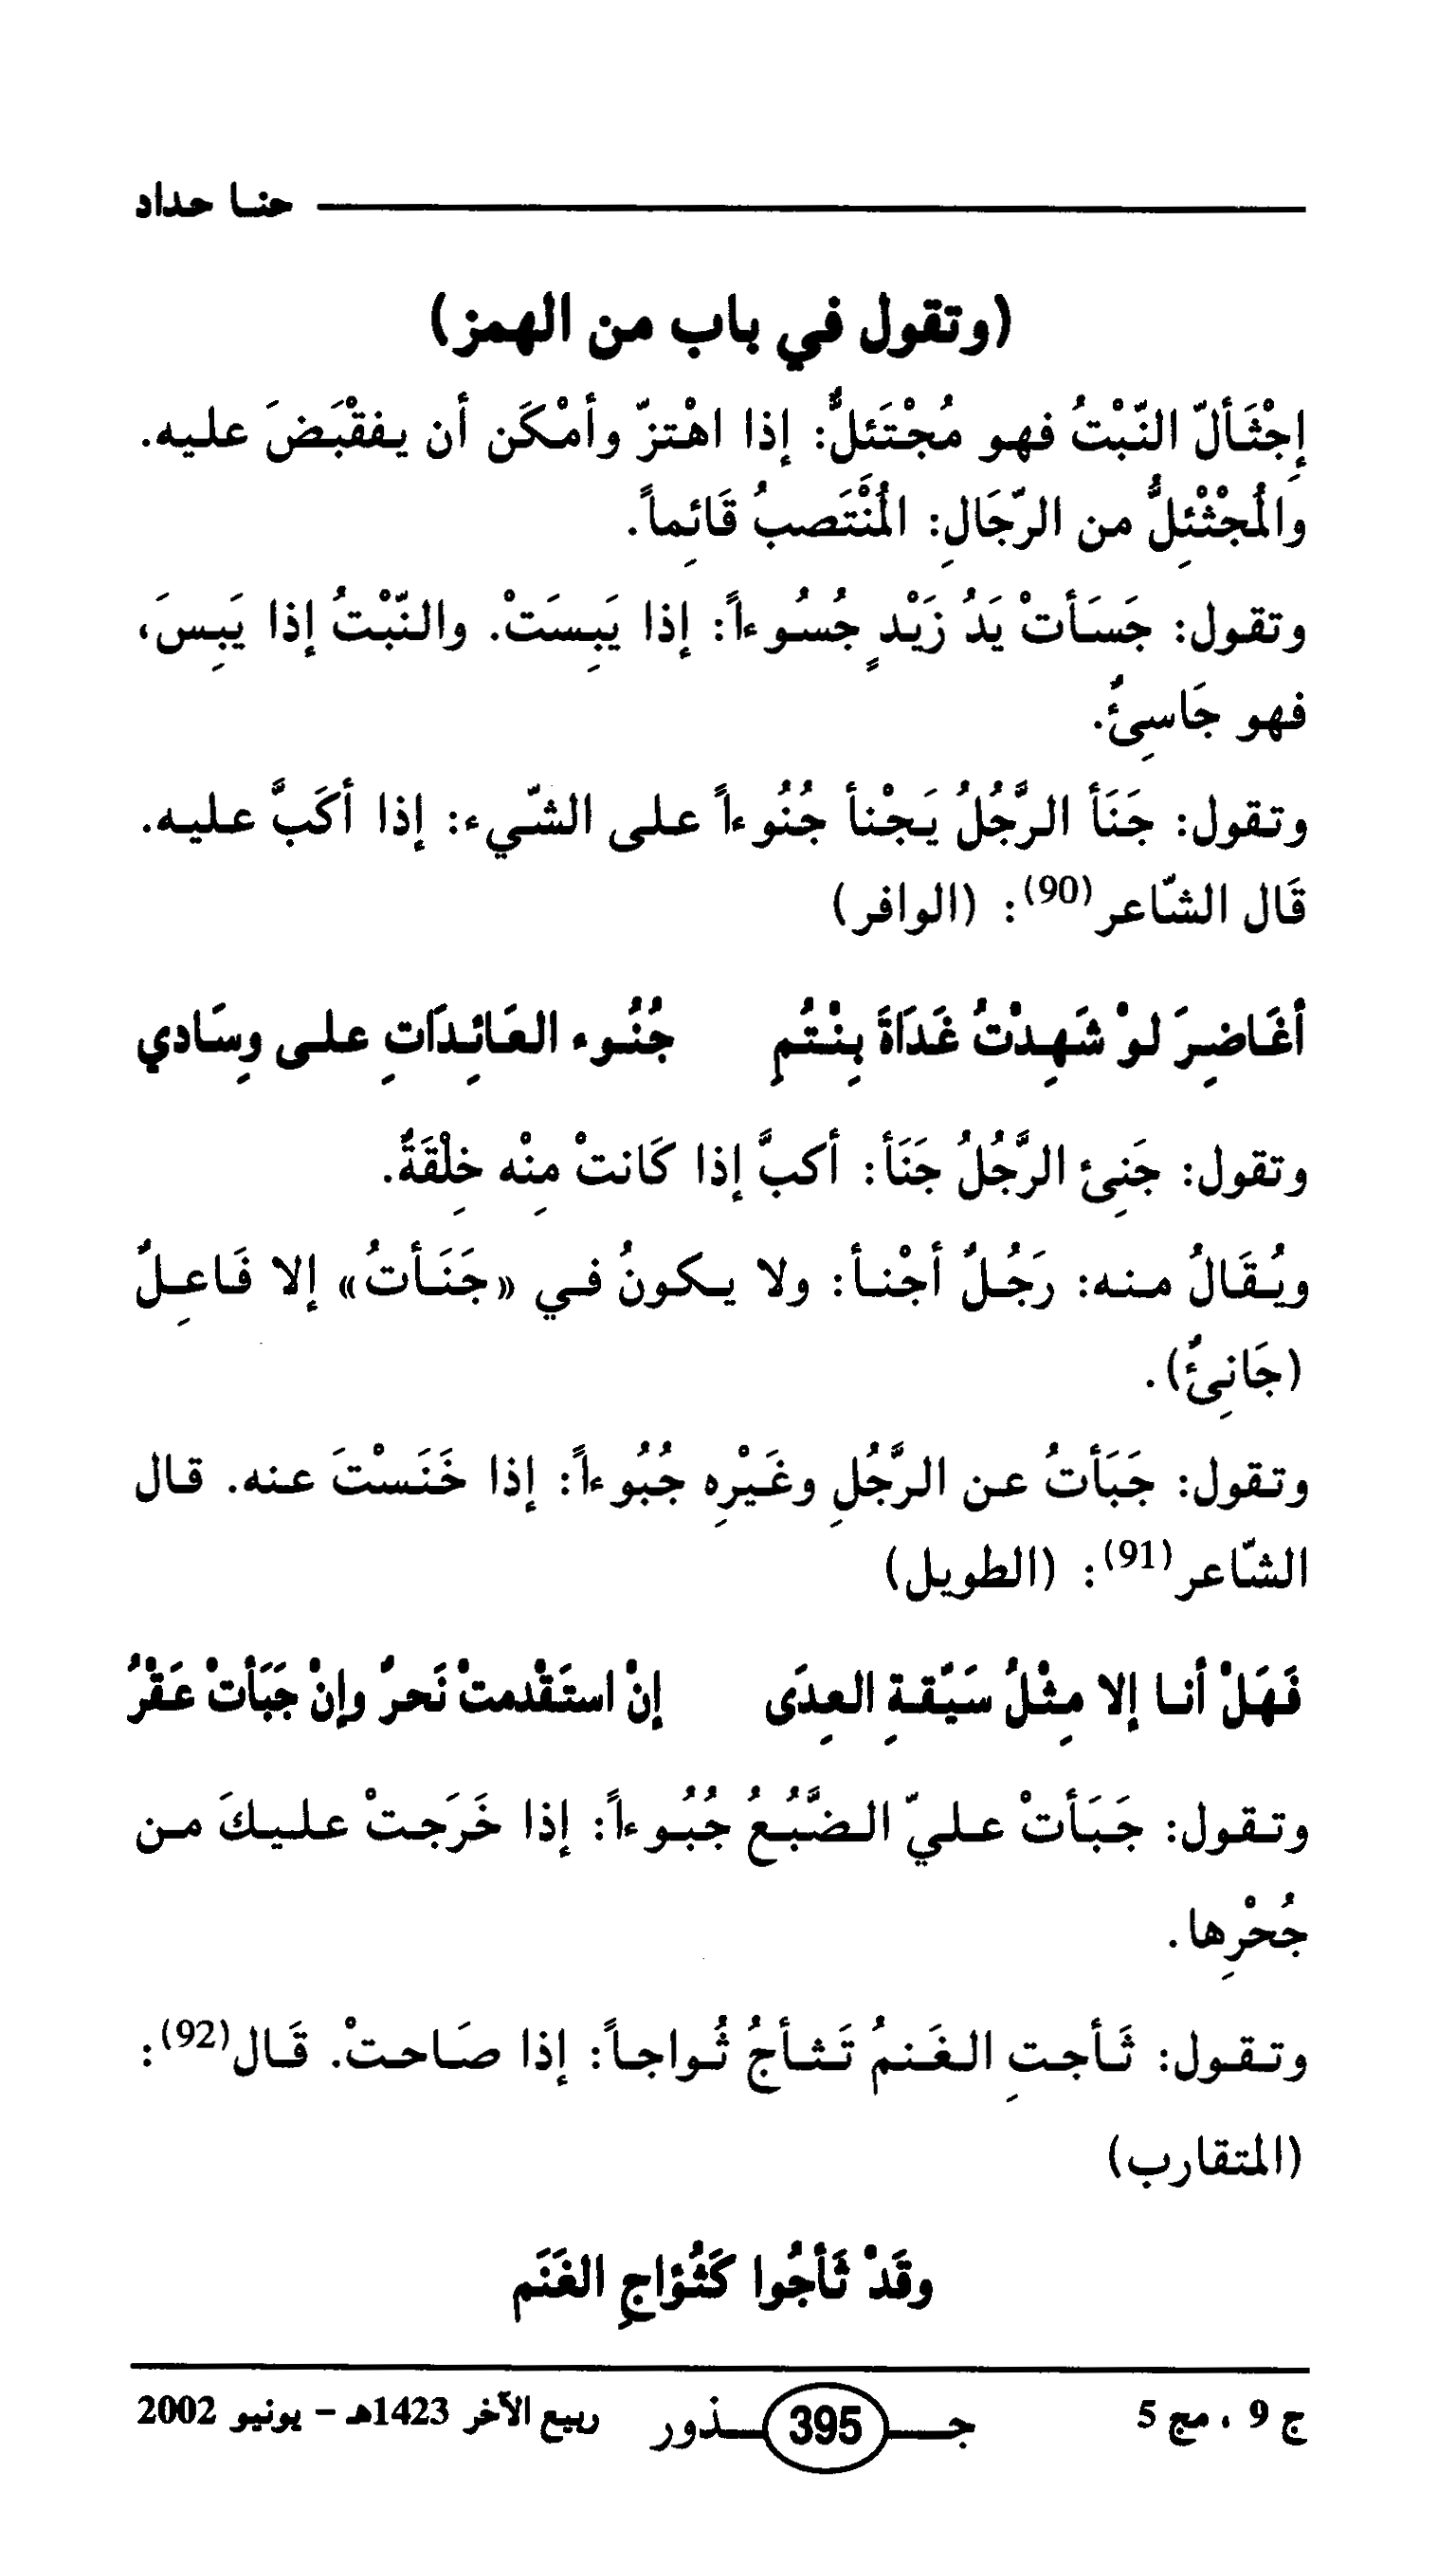 حنا حداد
(وتقول في باب من الهمز)
إِجْثَألّ النّبْتُ فهو مُجْتَئلٌّ: إذا اهْتزّ وأمْكَن أن يفقْبَضَ عليه.
والُمجْثْئِلُّ من الرّجَالِ: المُنْتَصبُ قَائِماً.
وتقول: جَسَأتْ يَدُ زَيْدٍ جُسُوءاً: إذا يَبِسَتْ. والنّبْتُ إذا يَبِسَ،
فهو جَاسِئٌ.
وتقول: جَنَأ الرَّجُلُ يَجْنأ جُنُوءاً على الشّيء: إذا أكَبَّ عليه.
قَال الشّاعر(90): (الوافر)
أغَاضِرَ لوْ شَهِدْتُ غَدَاةَ بِنْتُمِ جُنُوء العَائِدَاتِ على وِسَادي
وتقول: جَنِئ الرَّجُلُ جَنَأ: أكبَّ إذا كَانتْ مِنْه خِلْقَةٌ.
ويُقَالُ منه: رَجُلٌ أجْنأ: ولا يكونُ في «جَنَأتُ» إلا فَاعِلٌ
(جَانِئٌ).
وتقول: جَبَأتُ عن الرَّجُلِ وغَيْرِه جُبُوءاً: إذا خَنَسْتَ عنه. قال
الشّاعر(91): (الطويل)
فَهَلْ أنا إلا مِثْلُ سَيّقةِ العِدَى إنْ استَقْدمتْ نَحرٌ وإنْ جَبَأتْ عَقْرُ
وتقول: جَبَأتْ عليّ الضَّبُعُ جُبُوءاً: إذا خَرَجتْ عليكَ من
جُحْرِها.
وتقول: ثَأجتِ الغَنمُ تَثأجُ ثُواجاً: إذا صَاحتْ. قَال(92):
(المتقارب)
وقَدْ ثَأجُوا كَثُؤاجِ الغَنَم
ج 9 ، مج 5
جـــ 395 ــذور
ربيع الآخر 1423هـ - يونيو 2002